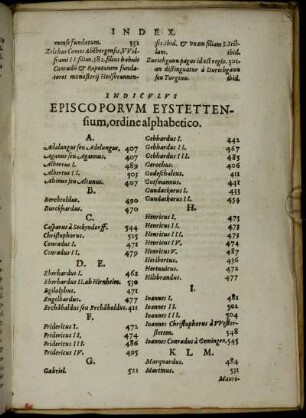 INDEX.
menses fundatum. 352
Zeichus Comes Abßbergensis, VVol
frami II. filius, 382. filius huiusce
Conradi & Rapotonem funda-
uerat monasterij Heilsbrunnen-
fis. ibid. & vnam filiam S. Stil-
lam. ibid.
Zurichgauu pagus id est regio. 301.
an distinguatur à Durichgauu
seu Turgouu. ibid.
INDICVLVS
EPISCOPORVM EYSTETTEN-
sium, ordine alphabetico.
A.
Adalungus seu Adelungus, 407
Aganus seu Agannus, 407
Albertus I. 489
Albertus II. 503
Altinus seu Altunus, 407
B.
Bertholdus, 490
Burckhardus, 470
C.
Casparus à Seckendorff. 544
Christophorus, 525
Conradus I. 471
Conradus II. 479
D. E.
Eberhardus I. 462
Eberhardus II. ab Hirnheim, 530
Egilolphus, 471
Engelhardus, 477
Erchābaldus seu Erchābaldus, 411
F.
Fridericus I. 472
Fridericus II. 484
Fridericus III. 486
Fridericus IV. 495
G.
Gabriel. 521
Gebhardus I. 441
Gebhardus II. 467
Gebhardus III. 485
Gerochus, 406
Godeschalcus, 411
Gosmannus, 441
Gundackarus I. 453
Gundackarus II. 454
H.
Henricus I. 473
Henricus II. 475
Henricus III. 475
Henricus IV. 474
Henricus V. 487
Heribertus, 436
Hertuuicus, 473
Hildbrandus, 477
I.
Ioannes I. 481
Ioannes II. 502
Ioannes III. 504
Ioannes Christophorus à VVester-
stetten. 548
Ioannes Conradus à Gemingen. 545
K L M.
Marquardus, 484
Martinus, 531
Mauri-